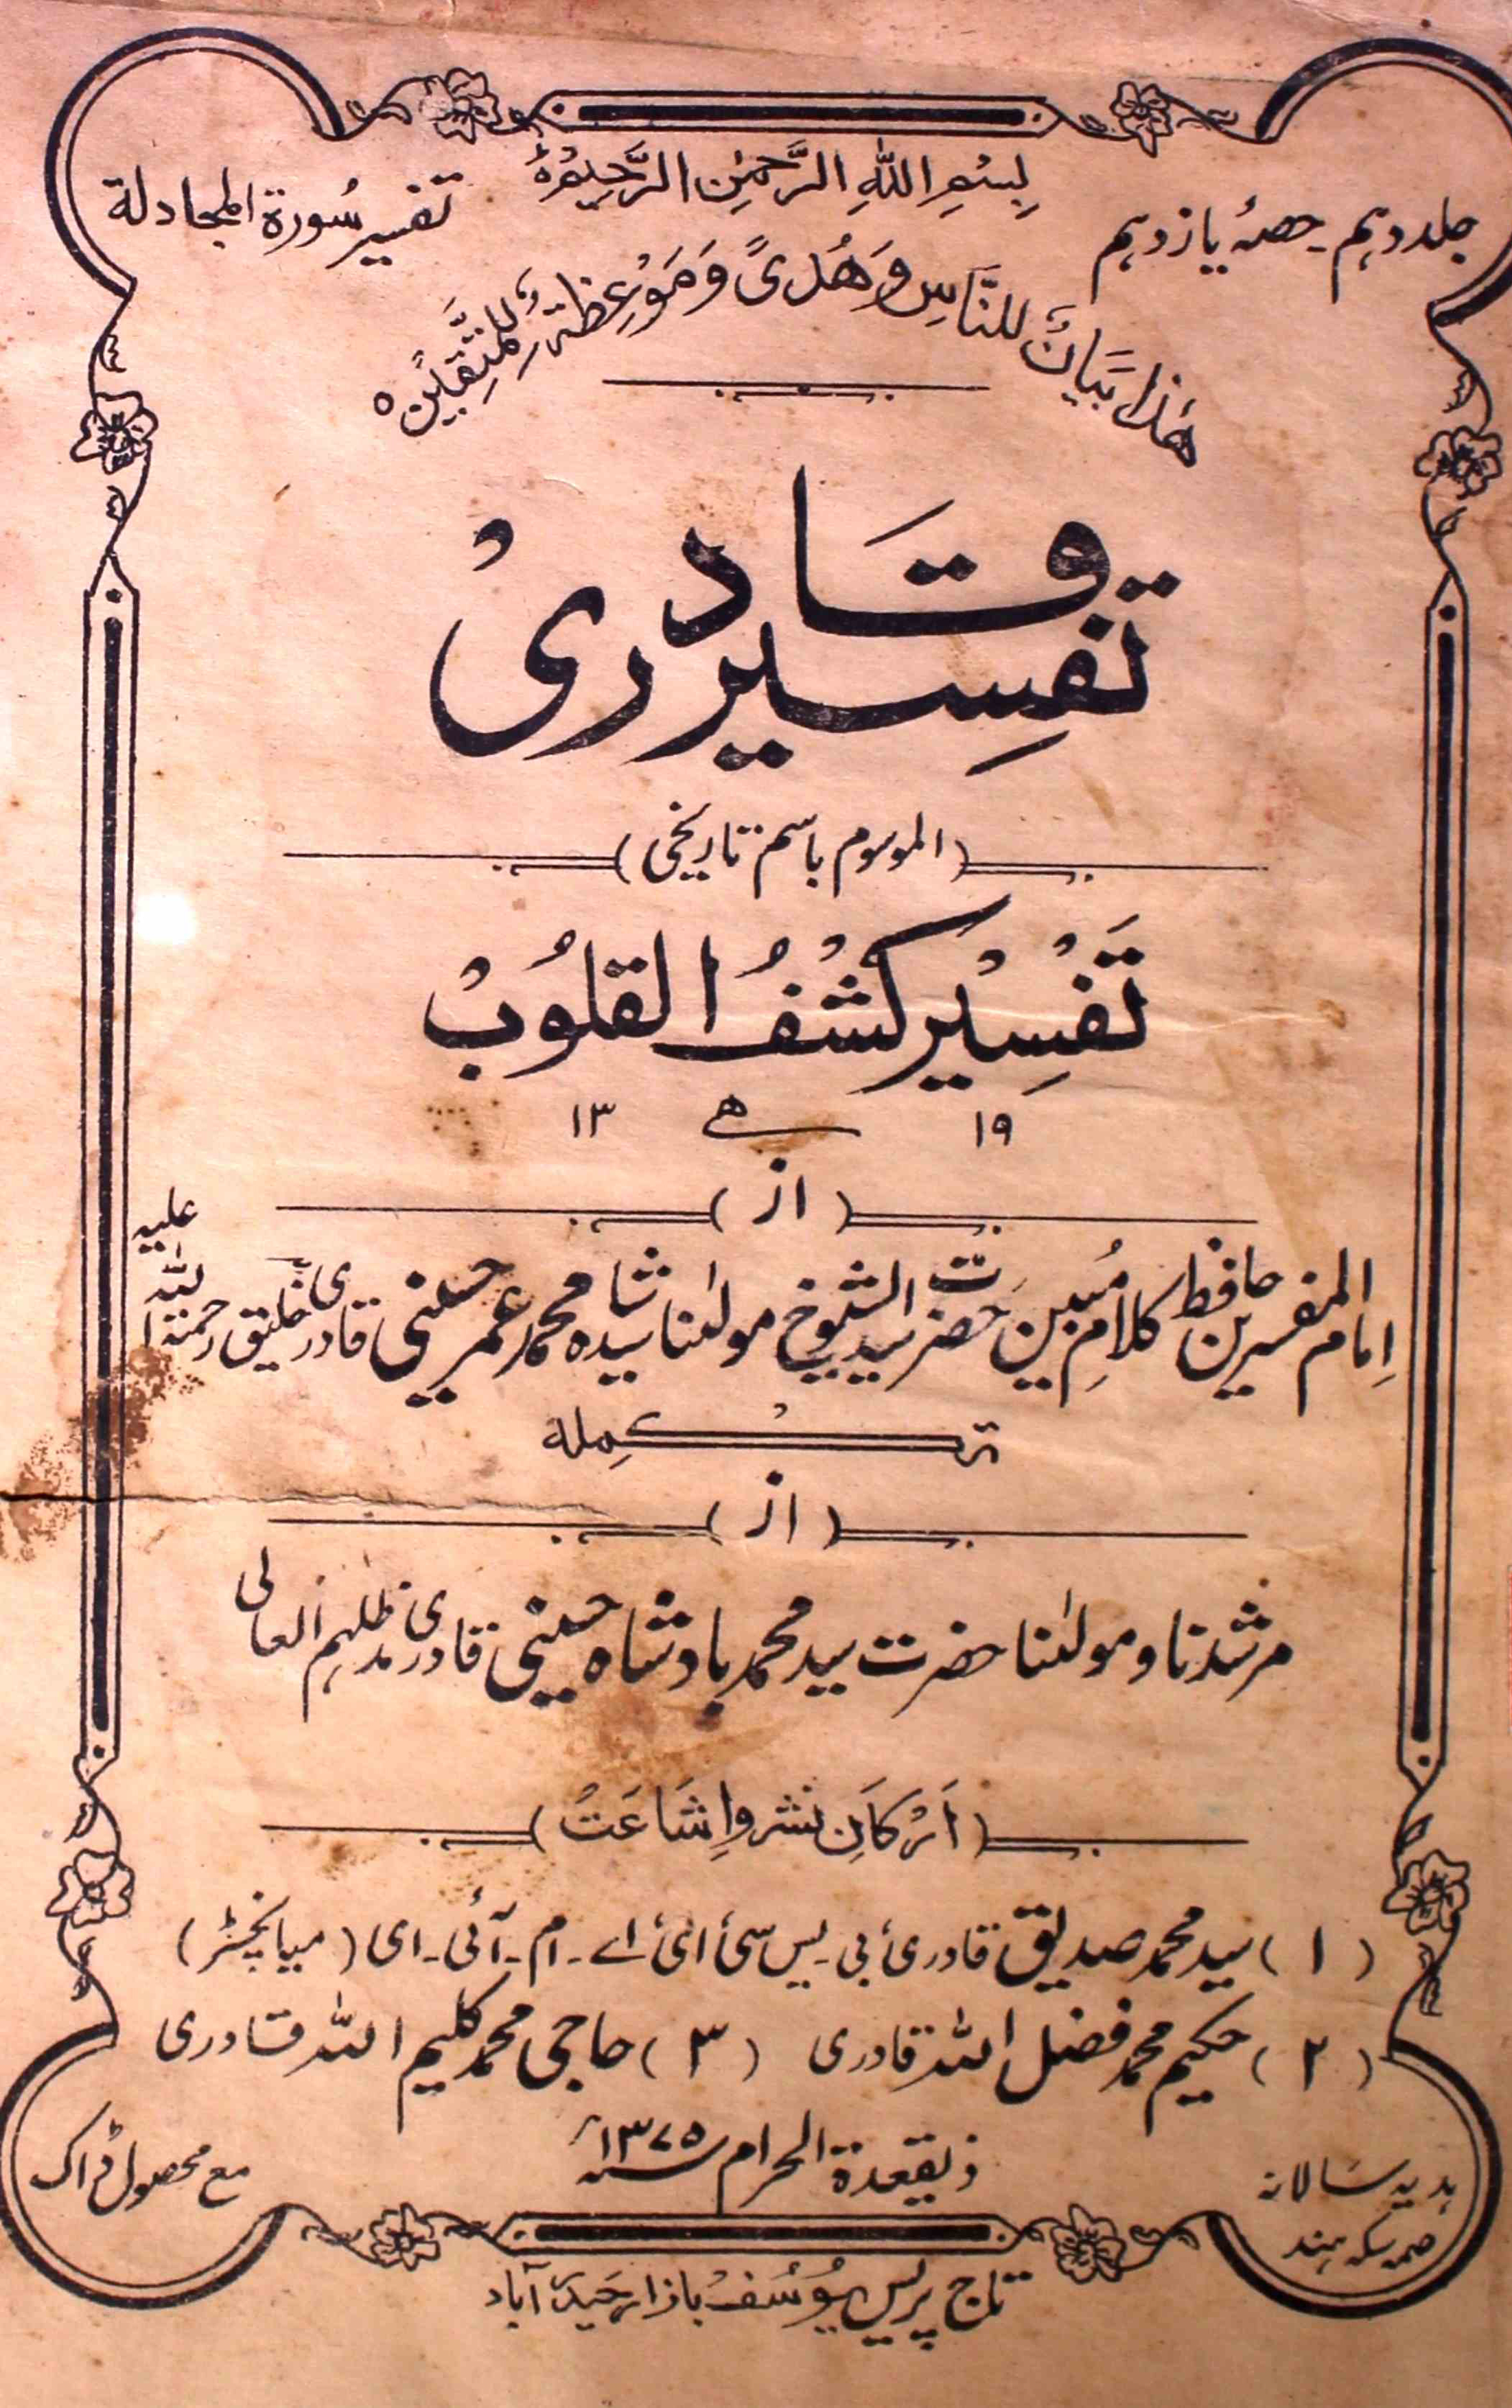 بِسْمِ اللهِ الرَّحْمٰنِ الرَّحِيْمِ
جلد دہم - حصۂ یازدہم
تفسیر سُورۃ المجادلۃ
هٰذَا بَيَانٌ لِلنَّاسِ وَهُدًى وَمَوْعِظَةٌ لِّلْمُتَّقِيْنَ ه
تفسِیر قادری
(الموسوم باسم تاریخی)
تَفْسِیْر کَشْفُ القلُوْبْ
۱۳ ھ ۱۹
(از)
اِمام المفسرین حافظ کلامِ مُبین حضرت سید الشیوخ مولٰنا سید شاہ محمد عمر حسینی قادری خلیق رحمۃ اللہ علیہ
تکمِلہ
(از)
مرشدنا و مولٰنا حضرت سید محمد بادشاہ حسینی قادری مدظلہم العالی
(اَرْکَانِ نشر واِشَاعَتْ)
(۱) سید محمد صدیق قادری بی - یس سی ای اے - ام - آئی - ای (میانیجنٹر)
(۲) حکیم محمد فضل اللہ قادری (۳) حاجی محمد کلیم اللہ قادری
ذیقعدۃ الحرام ۱۳۷۵ ؁
ہدیہ سالانہ
مع محصول ڈاک
تاج پریس یُوسُف بازار حیدرآباد